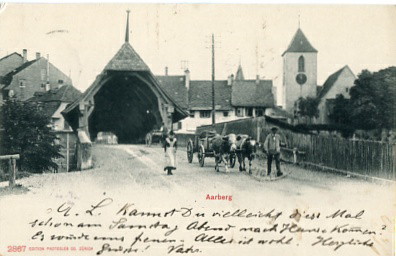 Aarberg
G. L. Kannst Du vielleicht dies Mal
schon am Samstag Abend nach Hause kommen?
Es würde uns freuen. Alles ist wohl. Herzliche
Grüsse! Vater.
2867 EDITION PHOTOGLOB CO. ZÜRICH